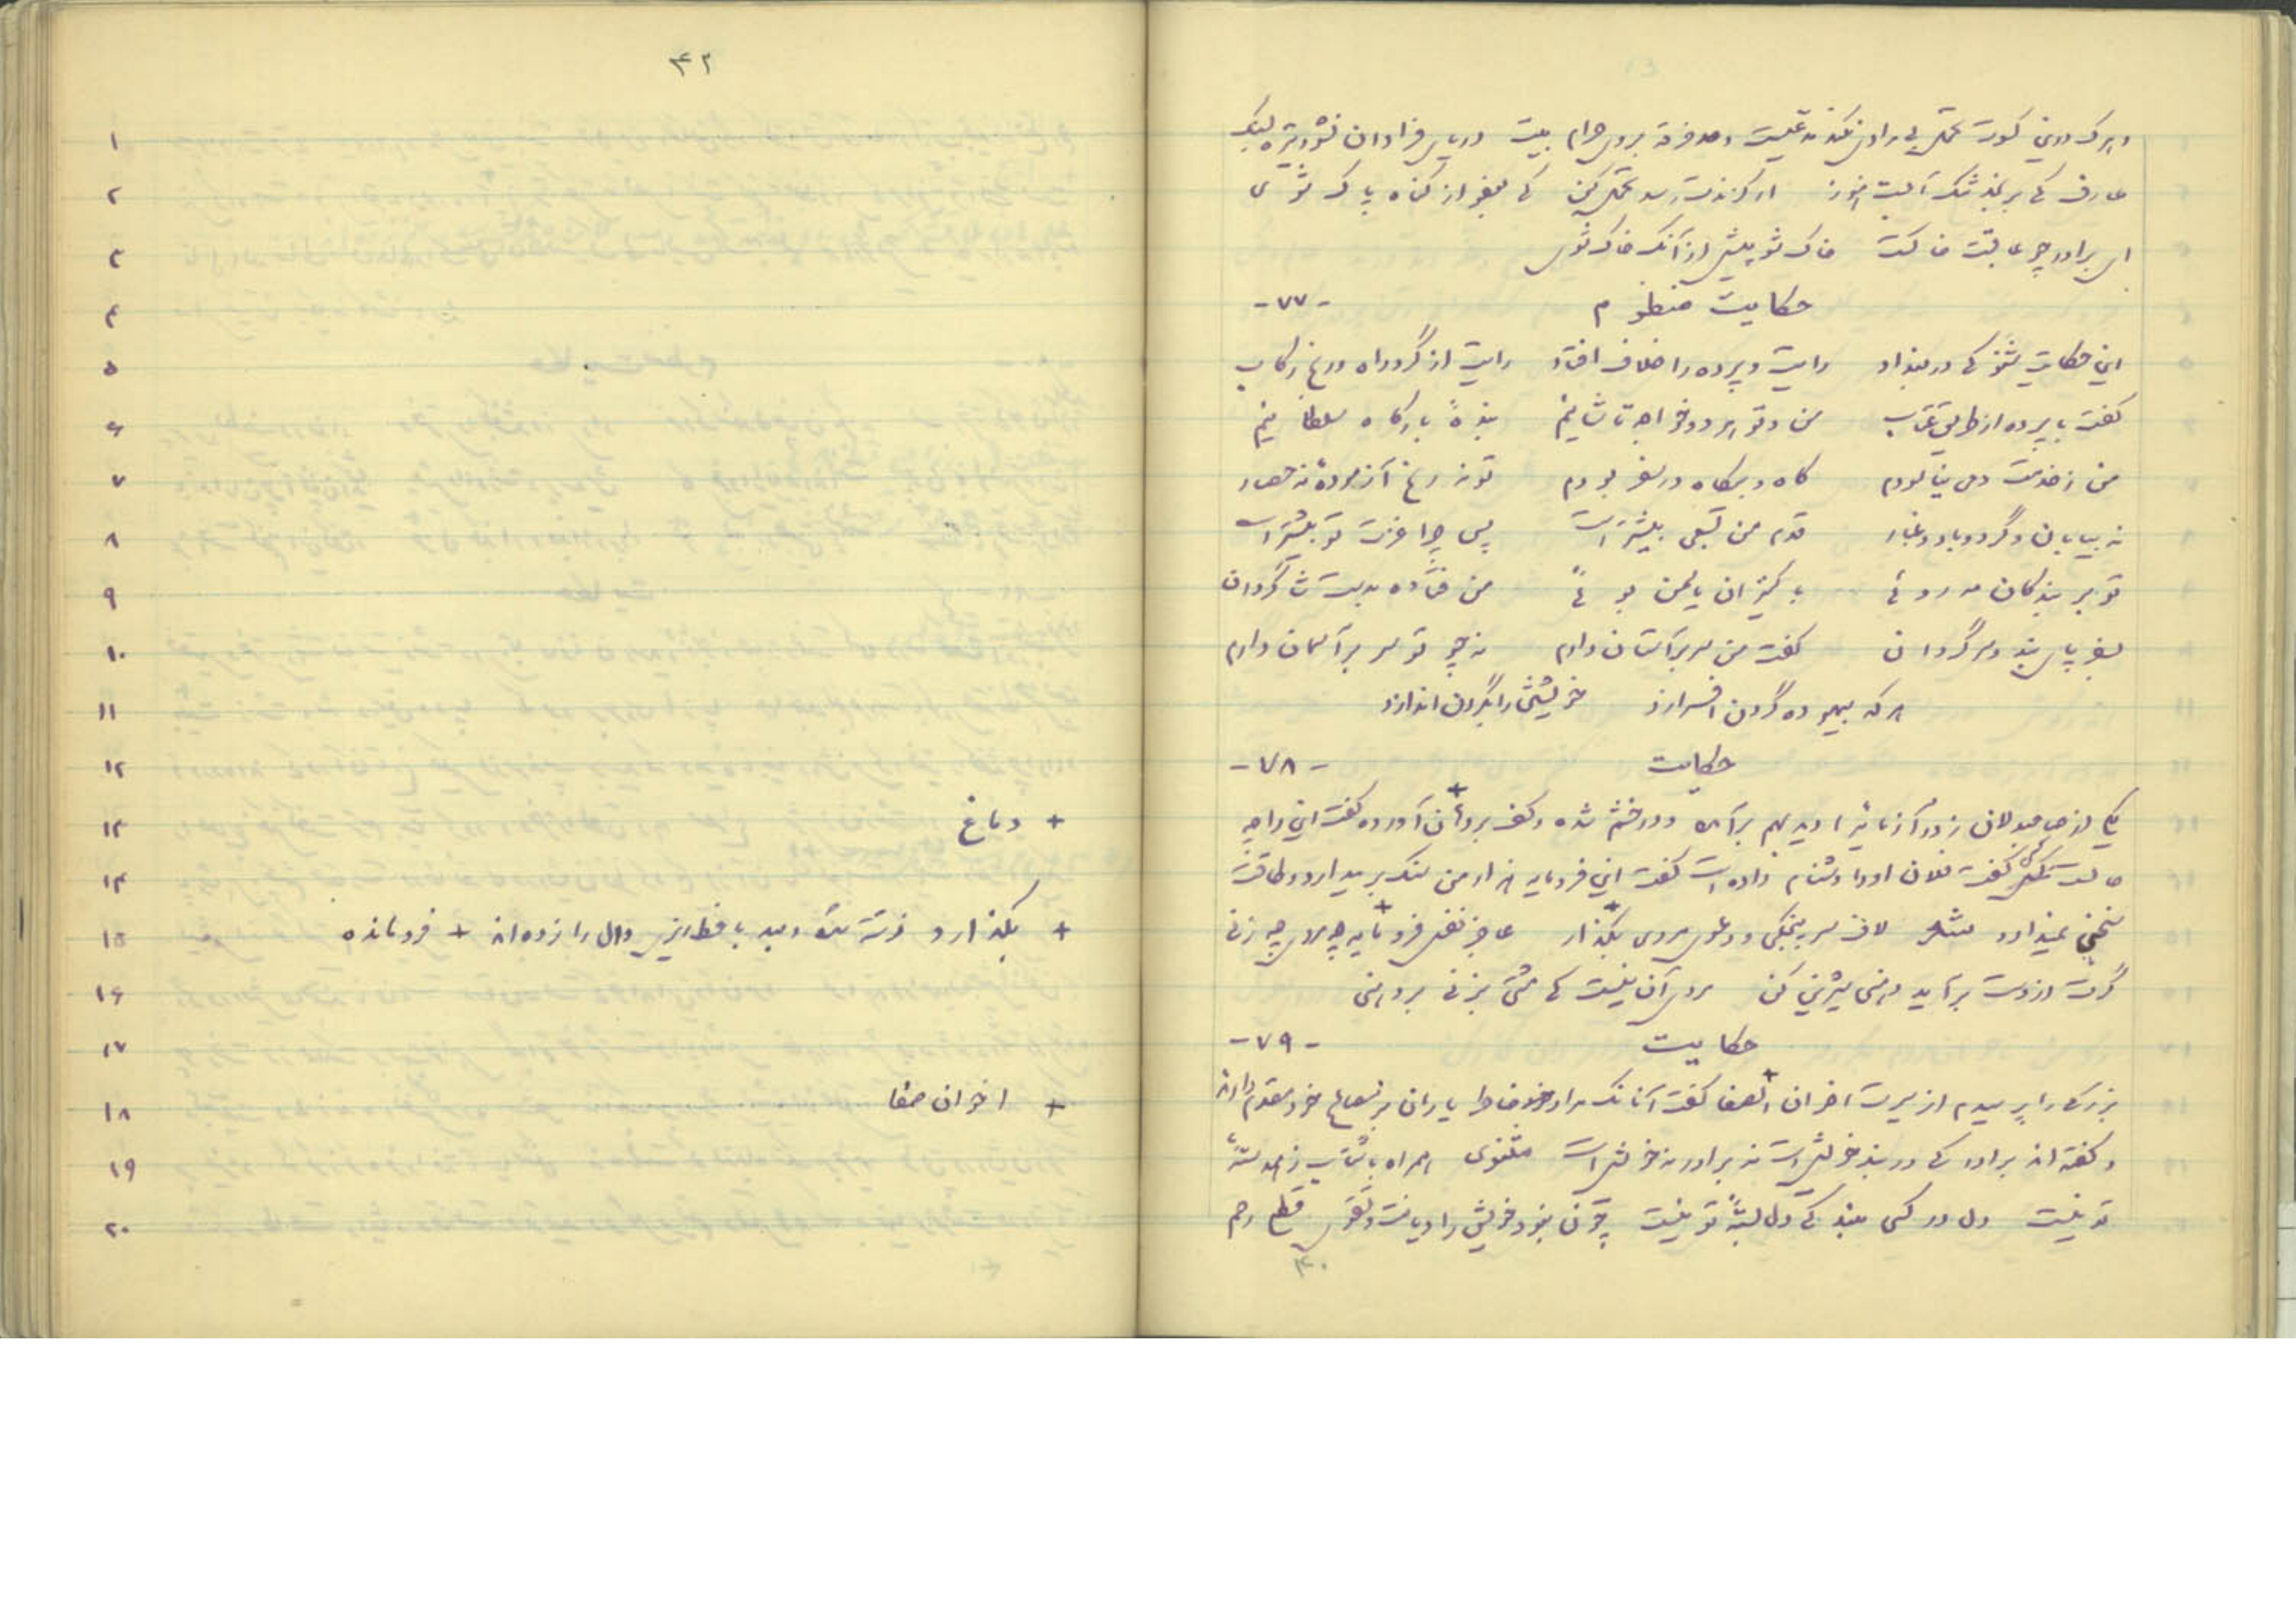 وهرکه درین کسوت تحمل بی‌مرادی نکند مدعیست و خرقه بروی حرام بیت دریای فراوان نشود تیره بسنگ
عارف که برنجد تنک آبست هنوز گر گزندت رسد تحمل کن که بعفو از گناه پاک شوی
ای برادر چو عاقبت خاکست خاک شو پیش از آنکه خاک شوی
حکایت منظوم -۷۷-
این حکایت شنو که در بغداد رایت و پرده را خلاف افتاد رایت از گرد راه و رنج رکاب
گفت با پرده از طریق عتاب من و تو هر دو خواجه تاشانیم بندهٔ بارگاه سلطانیم
من ز خدمت دمی نیاسودم گاه و بیگاه در سفر بودم تو نه رنج آزمودهٔ نه حصار
نه بیابان و گرد و باد و غبار قدم من بسعی پیشتر است پس چرا عزت تو بیشتر است
تو بر بندگان مه روئی با کنیزان یاسمن بوئی من فتاده بدست شاگردان
بسفر پای بند و سرگردان گفت من سر بر آستان دارم نه چو تو سر بر آسمان دارم
هر که بیهوده گردن افرازد خویشتن را بگردن اندازد
حکایت -۷۸-
یکی از صاحبدلان زورآزمائی را دید بهم برآمده و در خشم شده و کف بر دهان آورده گفت این را چه
حالتست کسی گفت فلان او را دشنام داده است گفت این فرومایه هزار من سنگ بر میدارد و طاقت
سخنی نمیدارد شعر لاف سرپنجگی و دعوی مردی بگذار عاجز نفس فرومایه چه مردی چه زنی
گرت از دست برآید دهنی شیرین کن مردی آن نیست که مشتی بزنی بر دهنی
حکایت -۷۹-
بزرگی را پرسیدم از سیرت اخوان الصفا گفت آنانکه مراد خاطر یاران بر مصالح خود مقدم دارند
و گفته‌اند برادر که در بند خویش است نه برادر نه خویش است مثنوی همراه با شتاب نه همرهٔ
تو نیست دل در کسی مبند که دل بستهٔ تو نیست چون نبود خویش را دیانت و تقوی قطع رحم
۴۰
۴۲
۱
۲
۳
۴
۵
۶
۷
۸
۹
۱۰
۱۱
۱۲
۱۳ + دماغ
۱۴
۱۵ + بگذارد نوشته شده و بعد با خط قرمز دال را زده‌اند + فرومانده
۱۶
۱۷
۱۸ + اخوان صفا
۱۹
۲۰